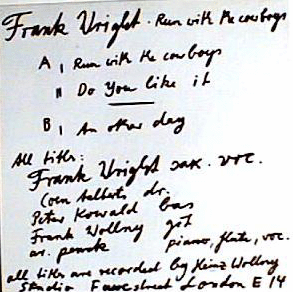 Frank Wright. Run with the cowboys
A 1 Run with the cowboys
" Do You like it
B 1 An other day
All titles:
Frank Wright sax. voc.
Coen Aalberts dr.
Peter Kowald bas
Frank Wollny git
ar. penck piano, flute, voc.
all titles are recorded by Heinz Wollny
Studio Fawestreet London E 14